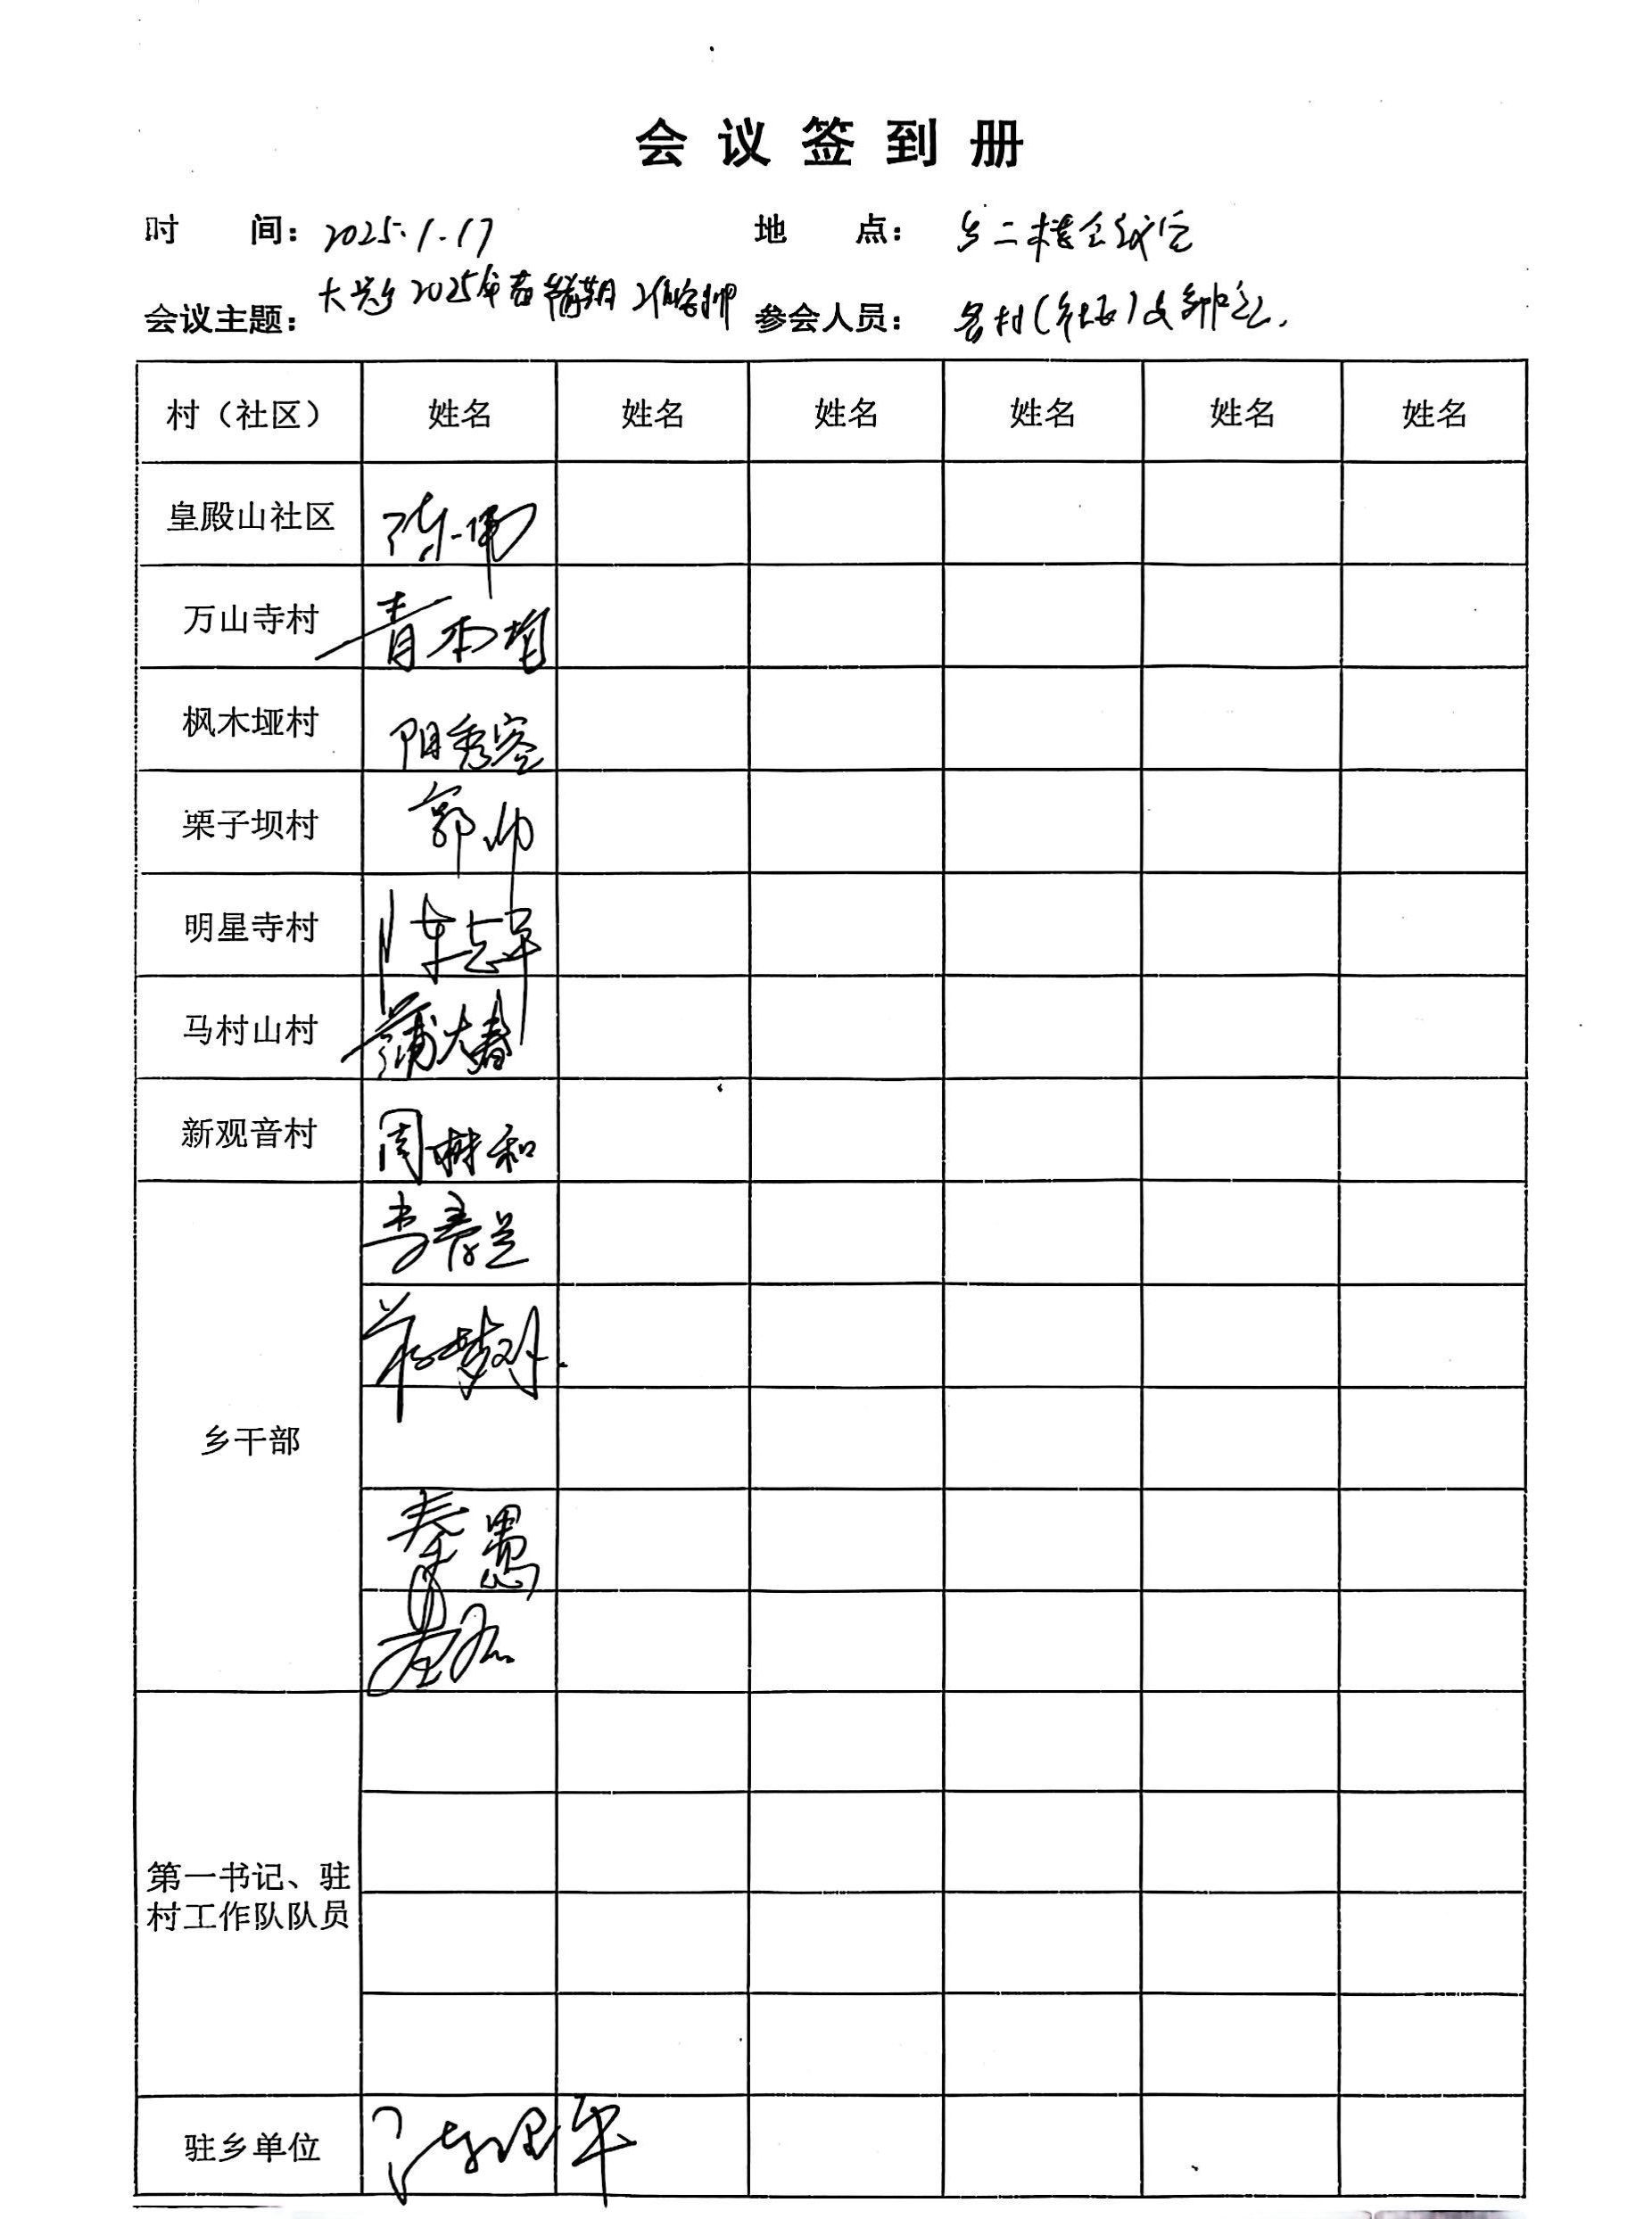 会议签到册
时 间：2025.1.17 地 点：乡二楼会议室
会议主题：大兴乡2025年春节前期 参会人员：各村（社区）支部书记.
村（社区） 姓名 姓名 姓名 姓名 姓名 姓名
皇殿山社区 陈伟
万山寺村 青本
枫木垭村 阳秀容
栗子坝村 郭帅
明星寺村 陈志军
马村山村 蒲大春
新观音村 周树和
李春兰
乡干部
秦愚
第一书记、驻
村工作队队员
驻乡单位